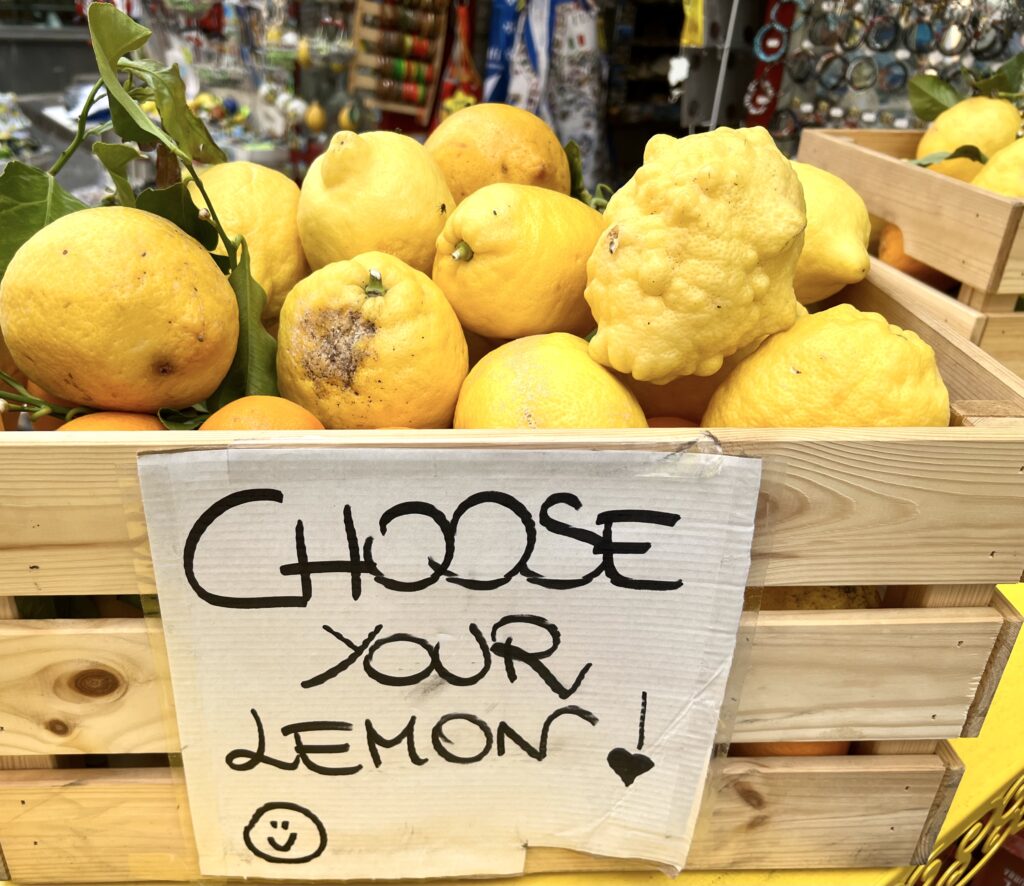 CHOOSE
YOUR
LEMON!